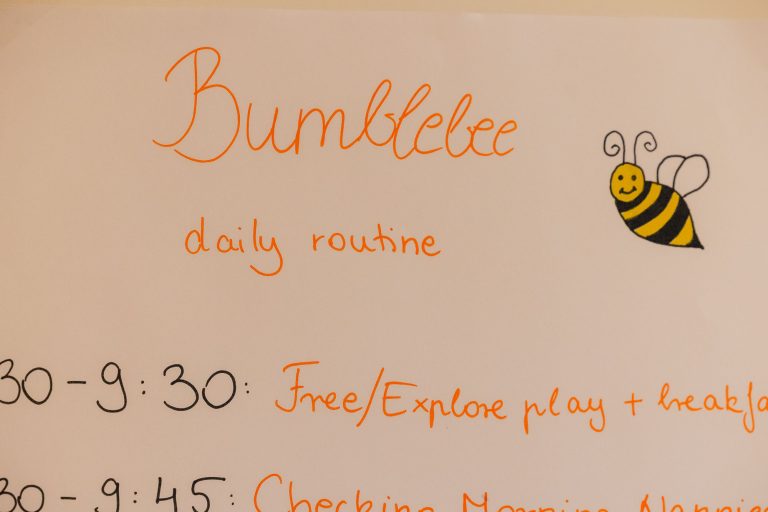 Bumblebee
daily routine
30 - 9:30: Free/Explore play + breakfa
30 - 9:45: Checking Morning Nappies